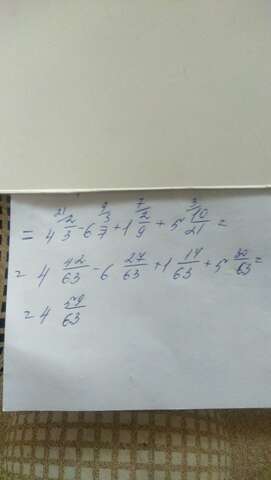 = 4 2/3 - 6 3/7 + 1 2/9 + 5 10/21 =
= 4 42/63 - 6 27/63 + 1 14/63 + 5 30/63 =
= 4 59/63